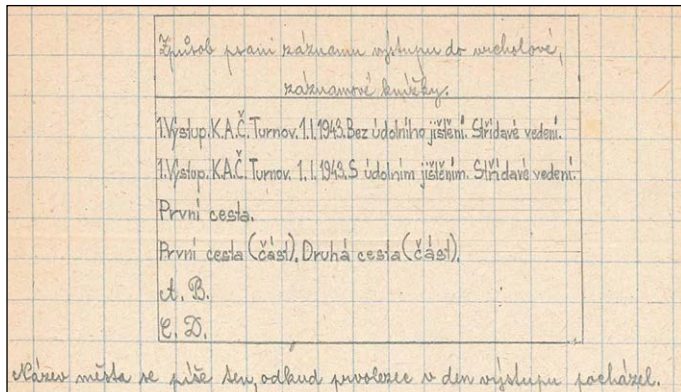 Způsob psaní záznamu výstupu do vrcholové,
záznamové knížky.
1.Výstup.K.A.Č.Turnov.1.I.1943.Bez údolního jištění. Střídavé vedení.
1.Výstup.K.A.Č.Turnov.1.I.1943.S údolním jištěním. Střídavé vedení.
První cesta.
První cesta (část). Druhá cesta (část).
A. B.
C. D.
Název města se píše ten, odkud prvolezec v den výstupu pocházel.